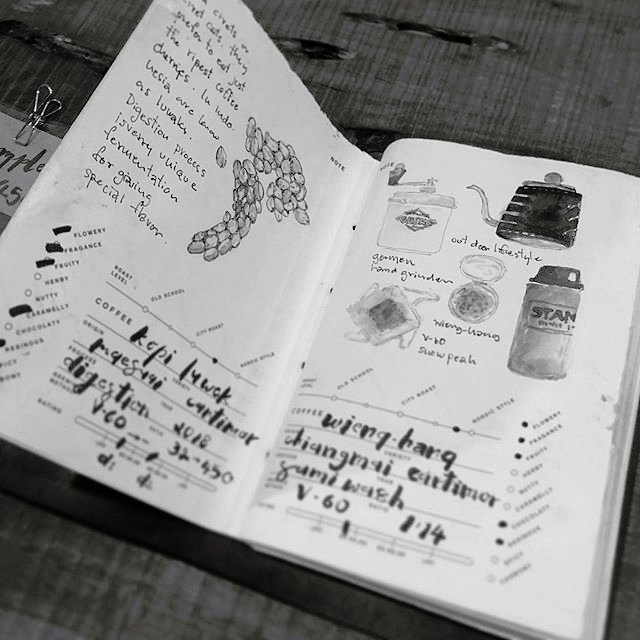 prefer to eat just
the ripest coffee
cherries. In Indo
nesia are know
as luwak,
Digestion process
is very unique
fermentation
for going
special flavor.
NOTE
FLOWERY
FRAGANCE
FRUITY
HERBY
NUTTY
CARAMELLY
CHOCOLATY
RESINOUS
SPICY
ROAST
LEVEL
OLD SCHOOL
CITY ROAST
NORDIC STYLE
COFFEE kopi luwak
ORIGIN maesuai catimor
digestion 2018
V-60 32-450
RATING
d1 d2
out door lifestyle
garmen
hand grinder
STAN
wieng-hang
V-60
snow peak
OLD SCHOOL
CITY ROAST
NORDIC STYLE
COFFEE wieng-hang
VARIETY
chiangmai catimor
semi wash
V-60 1:14
FLOWERY
FRAGANCE
FRUITY
HERBY
NUTTY
CARAMELLY
CHOCOLATY
RESINOUS
SPICY